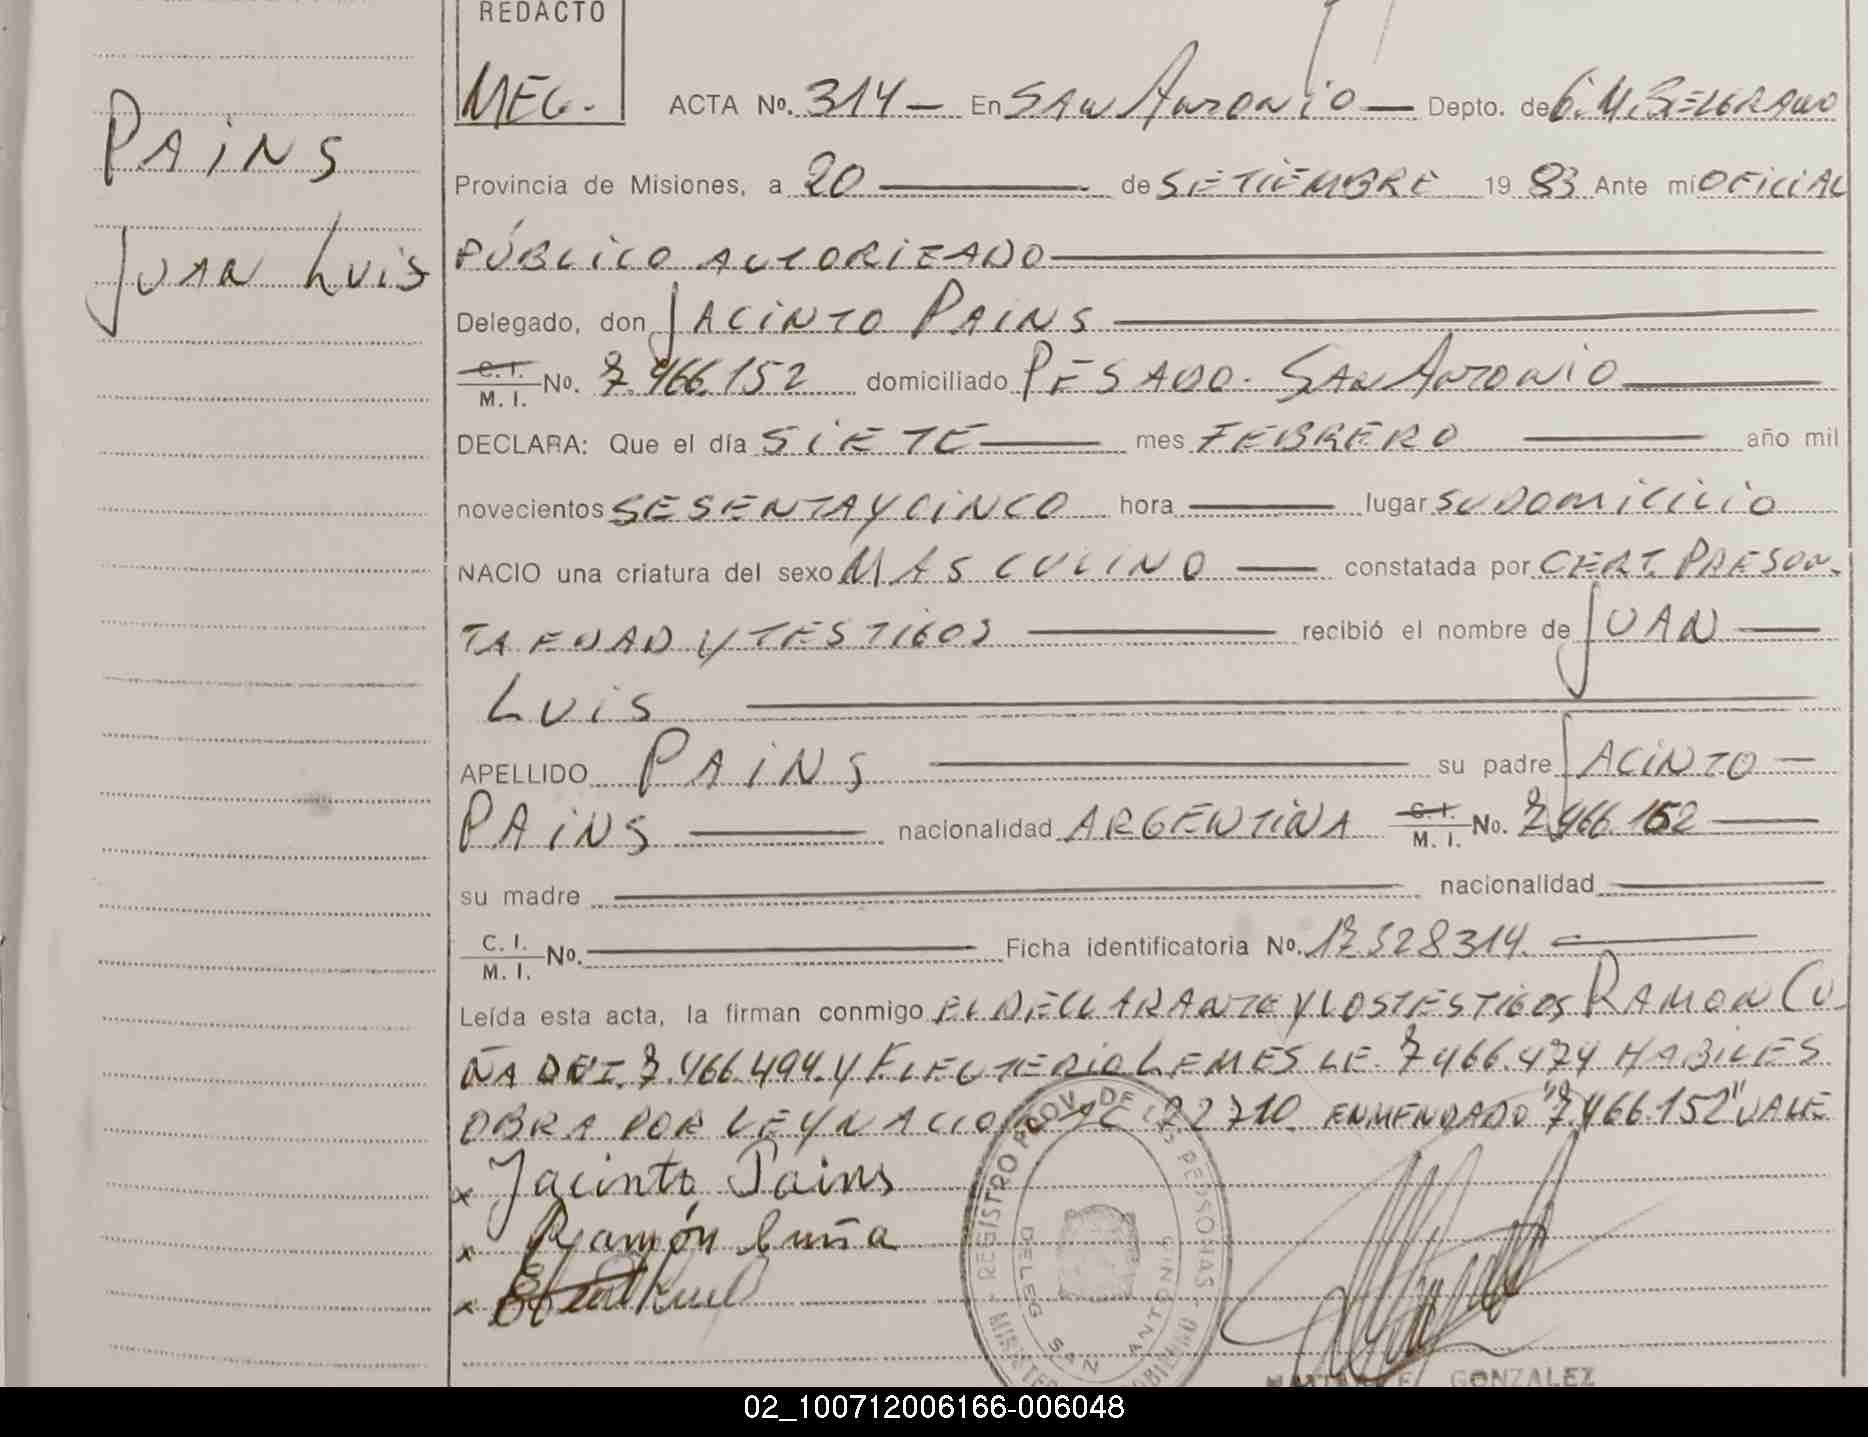 REDACTO
MEG.
ACTA No. 314 — En SAN ANTONIO — Depto. de G. M. BELGRANO
PAINS
Provincia de Misiones, a 20 — de SETIEMBRE 1983 Ante mi OFICIAL
JUAN LUIS
PÚBLICO AUTORIZADO
Delegado, don JACINTO PAINS
C. I. / M. I. No. 7.466.152 domiciliado PESADO. SAN ANTONIO
DECLARA: Que el día SIETE — mes FEBRERO — año mil
novecientos SESENTA Y CINCO hora — lugar SU DOMICILIO
NACIO una criatura del sexo MASCULINO — constatada por CERT. PRESUN-
TA EDAD Y TESTIGOS — recibió el nombre de JUAN —
LUIS
APELLIDO PAINS — su padre JACINTO —
PAINS — nacionalidad ARGENTINA C. I. / M. I. No. 7.466.152 —
su madre — nacionalidad —
C. I. / M. I. No. — Ficha identificatoria No. 17.528314. —
Leída esta acta, la firman conmigo EL DECLARANTE Y LOS TESTIGOS RAMON CU-
ÑA DNI. 7.466.494. Y ELEUTERIO LEMES LE. 7466.474 HABILES
OBRA POR LEY NACIONAL 22710. ENMENDADO "7.466.152" VALE
x Jacinto Pains
x Ramón Cuña
x
REGISTRO PROV. DE LAS PERSONAS
DELEG SAN ANTONIO
GONZALEZ
02_100712006166-006048